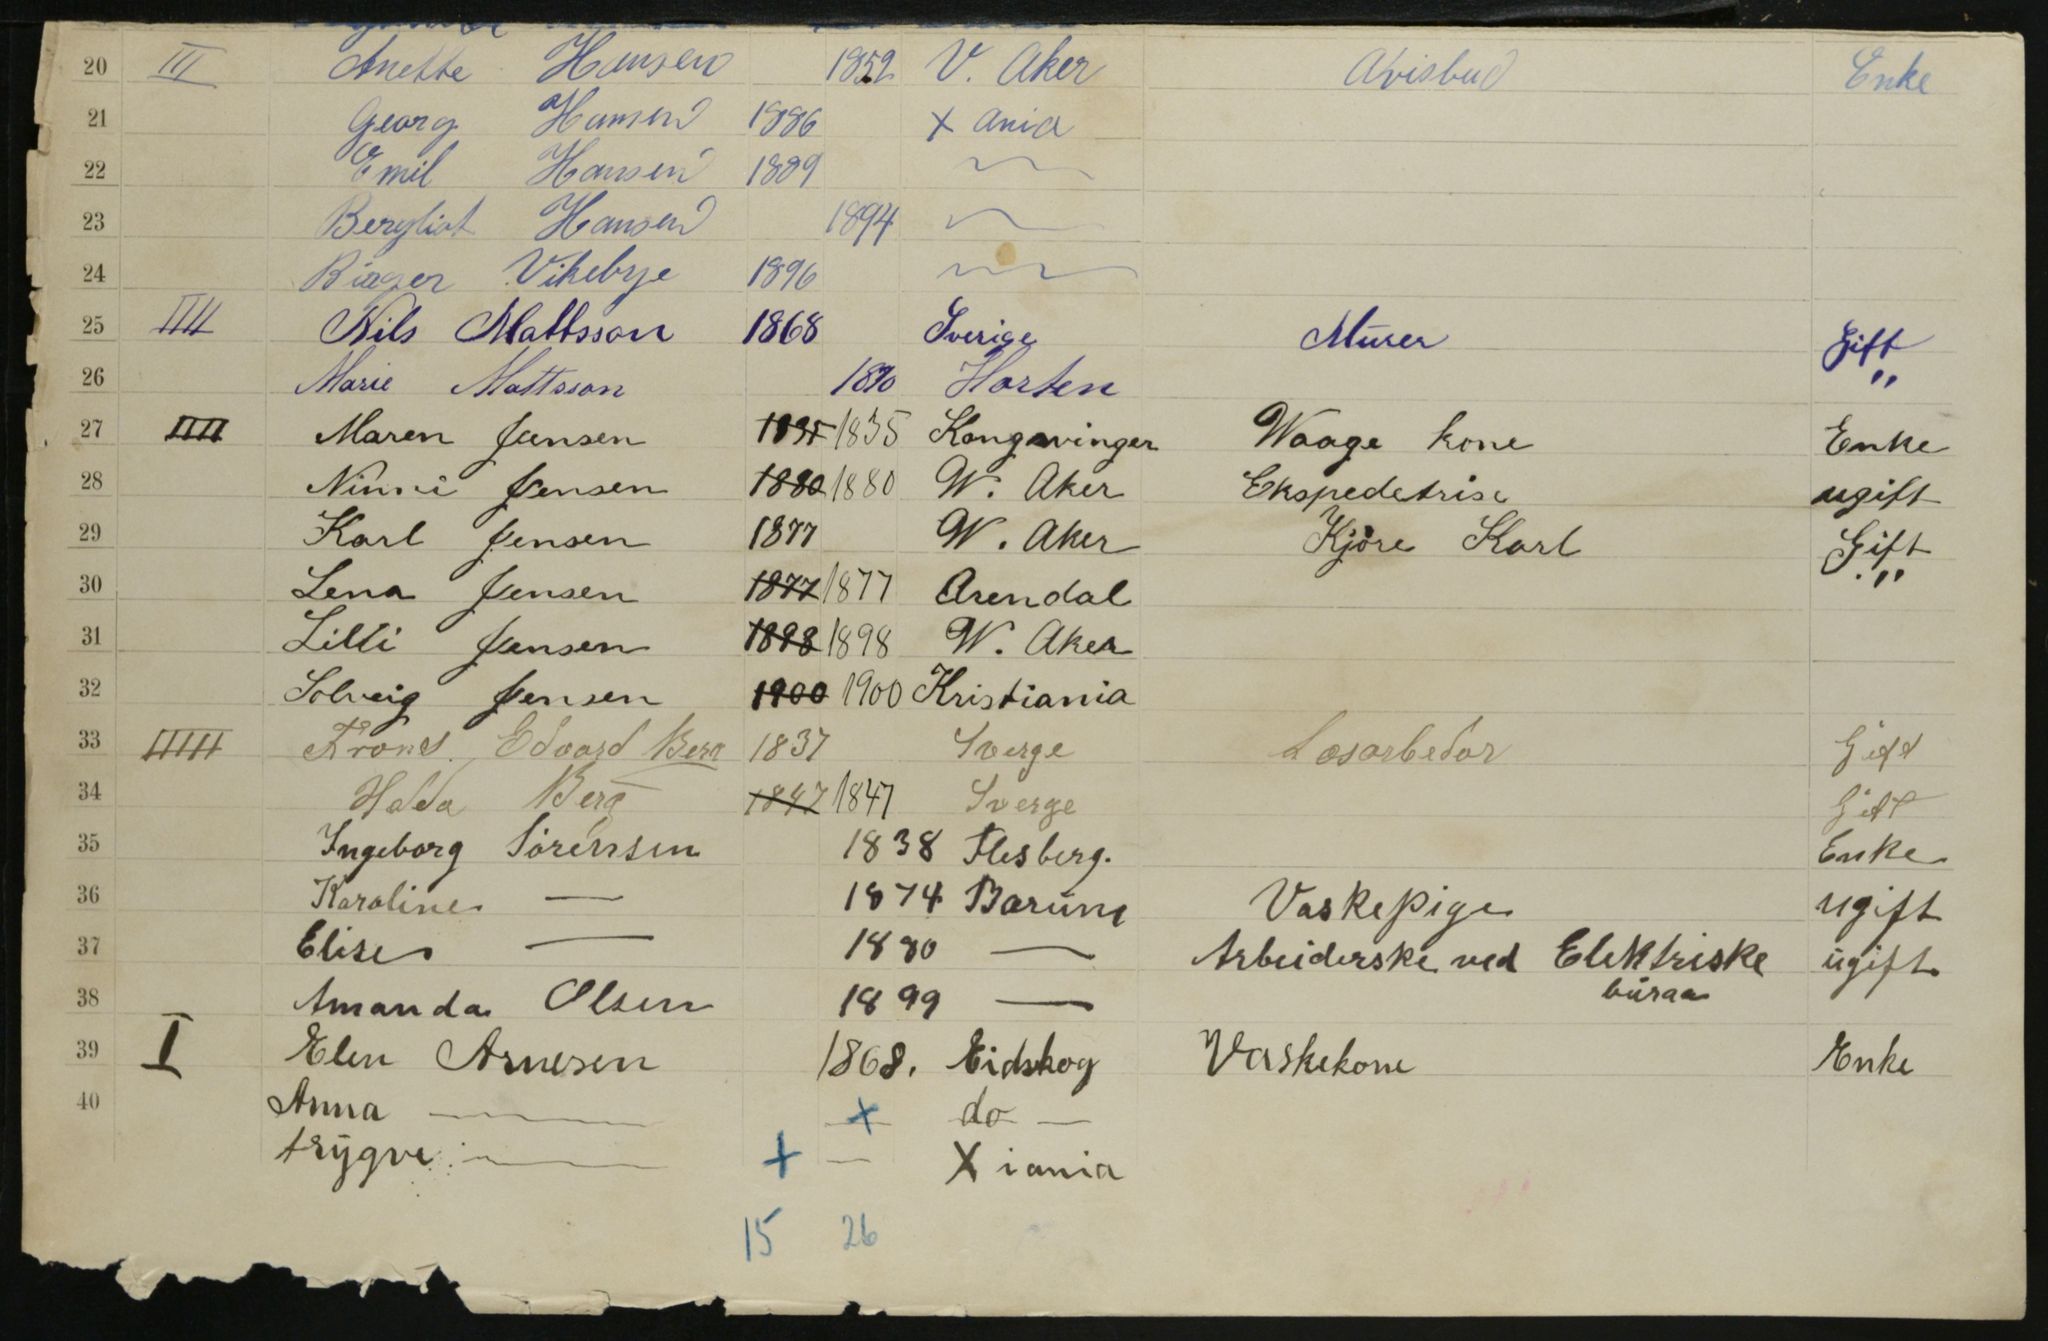 20 III Anette Hansen 1852 V. Aker Avisbud Enke
21 Georg Hansen 1886 X ania
22 Emil Hansen 1889
23 Bergliot Hansen 1894
24 Birger Vikebye 1896
25 IIII Nils Mattsson 1868 Sverige Murer Gift
26 Marie Mattsson 1870 Horten "
27 IIII Maren Jensen 1835 1835 Kongsvinger Waage kone Enke
28 Ninni Jensen 1880 1880 W. Aker Ekspedetrise ugift
29 Karl Jensen 1877 W. Aker Kjøre Karl Gift
30 Lena Jensen 1877 1877 Arendal "
31 Lilli Jensen 1898 1898 W. Aker
32 Solveig Jensen 1900 1900 Kristiania
33 IIIII Frans Edvard Berg 1837 Sverge Losarbedar Gift
34 Berg 1847 1847 Sverge Gift
35 Ingeborg Sörensen 1838 Flesberg. Enke
36 Karoline — 1874 Barüm Vaskepige ugift
37 Elise — 1880 — Arbeiderske ved Elektriske ugift
büraa
38 Amanda Olsen 1899 —
39 I Elen Arnesen 1868. Eidskog Vaskekone Enke
40 Anna — + do —
trygve — + — Xiania
15 26